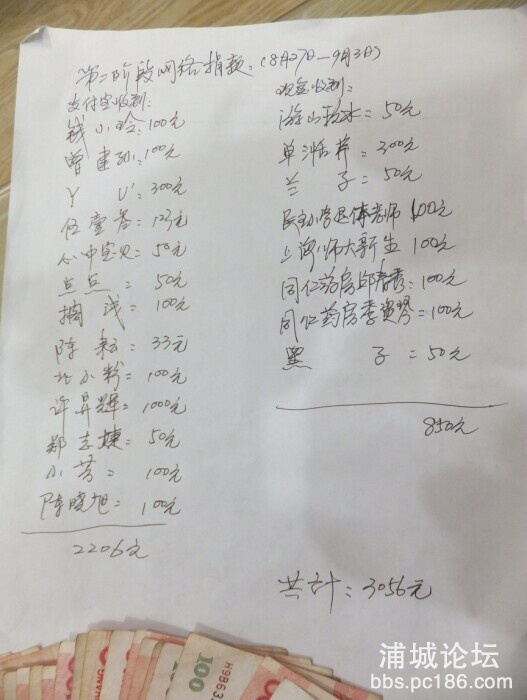 第二阶段网络捐款：(8月27日-9月3日)
支付宝收到：
钱小玲：100元
曾建弘：100元
Y U：300元
伍 ：123元
心中宝贝=50元
点点：50元
 浅=100元
陈耘=33元
 小粉=100元
许昇辉=1000元
郑志 =50元
小芳=100元
陈晓旭=100元
2206元
现金收到：
游山玩水=50元
单 =300元
兰子=50元
民主小学退休老师100元
上海师大新生100元
同仁药房邱春秀：100元
同仁药房季 琴=100元
黑子=50元
850元
共计：3056元
100
H9B63
浦城论坛
bbs.pc186.com